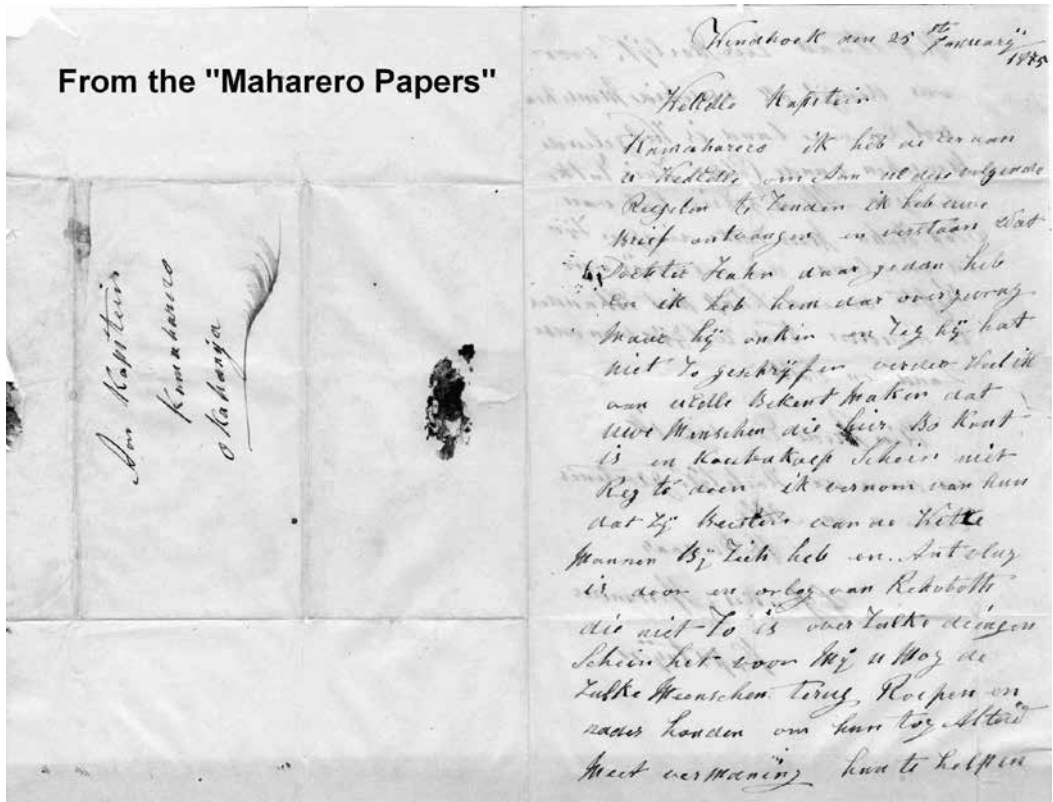 From the "Maharero Papers"
Aan Kaptein
Kamaharero
Okahanja
Windhoek den 25 st January
1885
WelEdle Kaptein
Kamaharero ik heb de Eer aan
u WelEdle om Aan UE dese volgende
Regelen te Zenden ik heb uwe
Brief ontvangen en verstaan Wat
Docktor Hahn daar gedan heb
En ik heb hem dar over gevrag
Maar hij onkin en Zeg hij hat
niet Zo geschrijfen verder Wiel ik
van uEdle Bekent Maken dat
uwe Menschen die hier Bo Kant
is en Schein niet
Reg te doen ik vernom van hun
dat Zij Beesten van de
Mannen Bij Zich heb en
is door en orlog van Rehoboth
die niet Zo is over Zulke dingen
Schein het voor Mij u Mog de
Zulke Menschen terug Roepen en
nader houden om hun tog Alteid
Meet vermaning hun te helpen